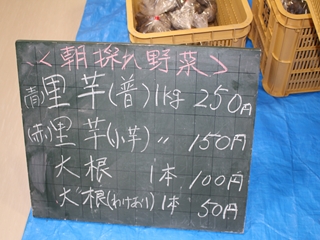 <朝採れ野菜>
(青)里芋(普)1kg 250円
(赤)里芋(小芋)〃 150円
大根 1本 100円
大根(わけあり)1本 50円